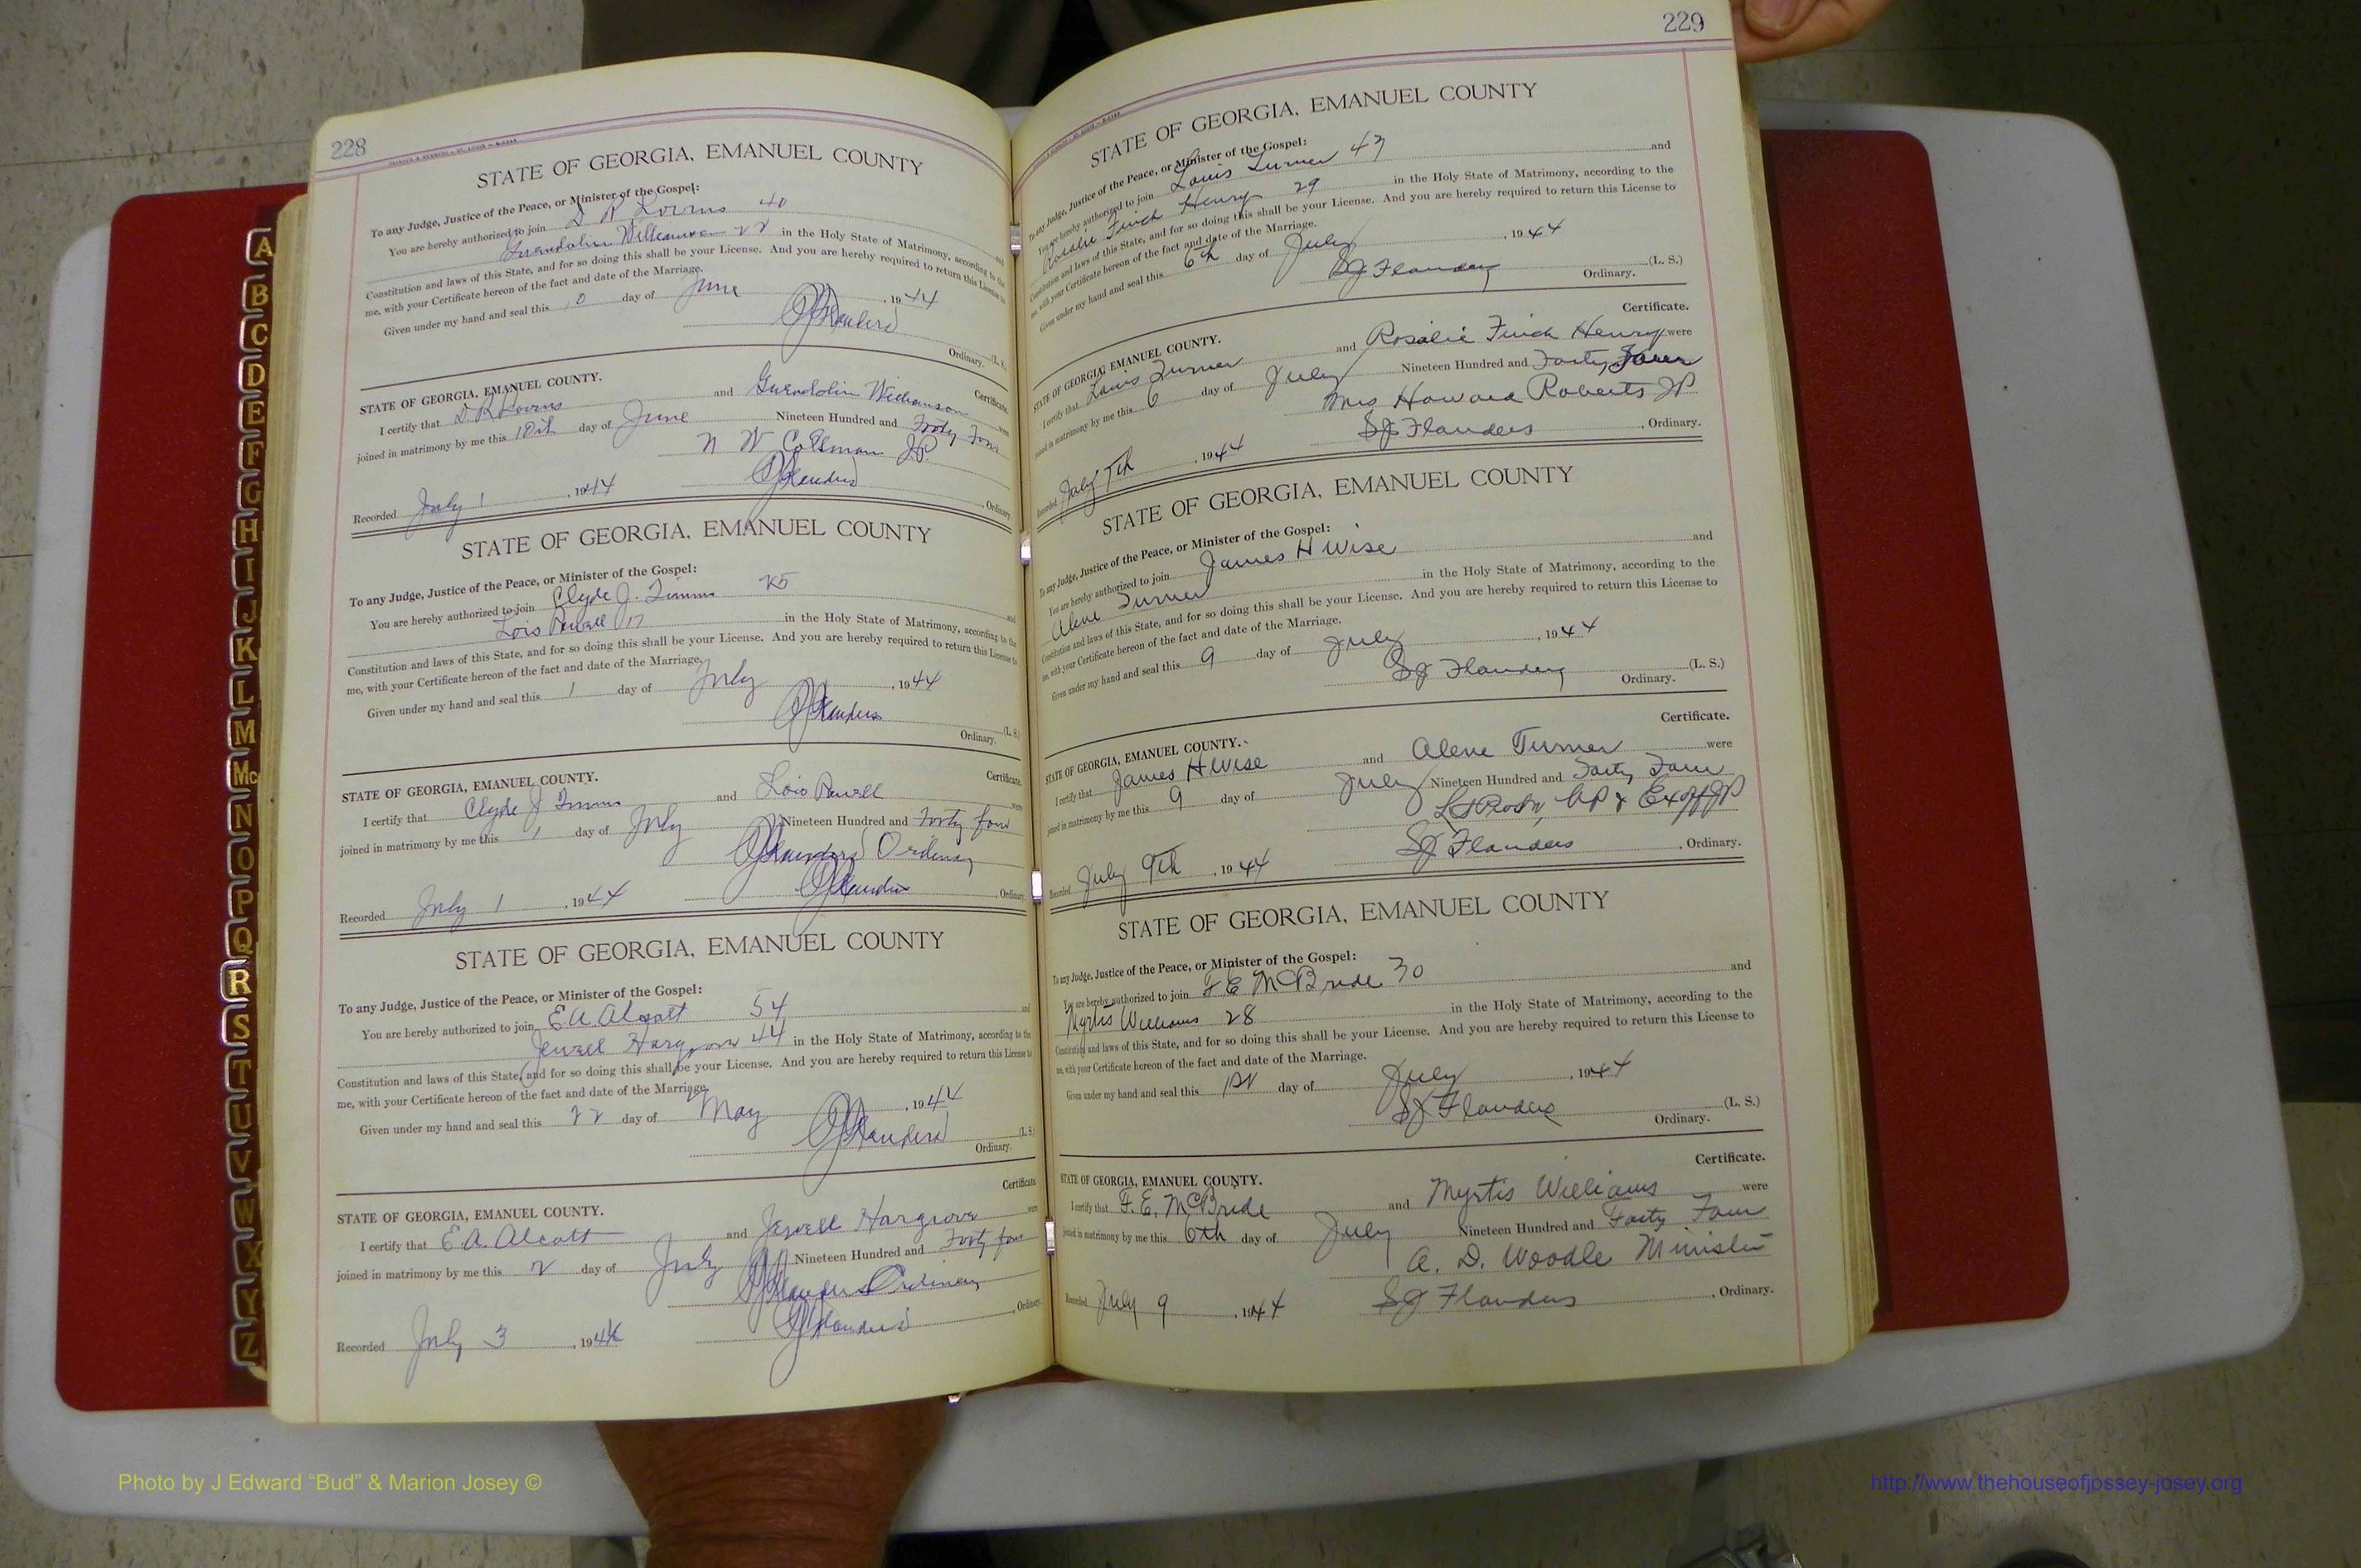 228
STATE OF GEORGIA, EMANUEL COUNTY
To any Judge, Justice of the Peace, or Minister of the Gospel:
You are hereby authorized to join D R Lovins 40 and
Williamson 22 in the Holy State of Matrimony, according to the
Constitution and laws of this State, and for so doing this shall be your License. And you are hereby required to return this License to
me, with your Certificate hereon of the fact and date of the Marriage.
Given under my hand and seal this 10 day of June, 1944
Flanders (L. S.)
Ordinary.
Certificate.
STATE OF GEORGIA, EMANUEL COUNTY.
I certify that D. R. Lovins and Guendolin Williamson were
joined in matrimony by me this 10th day of June Nineteen Hundred and Forty Four
N W Coleman J.P.
Recorded July 1, 1944 Flanders, Ordinary.
STATE OF GEORGIA, EMANUEL COUNTY
To any Judge, Justice of the Peace, or Minister of the Gospel:
You are hereby authorized to join Clyde J. Timms 25 and
Lois Powell 17 in the Holy State of Matrimony, according to the
Constitution and laws of this State, and for so doing this shall be your License. And you are hereby required to return this License to
me, with your Certificate hereon of the fact and date of the Marriage.
Given under my hand and seal this 1 day of July, 1944
Flanders (L. S.)
Ordinary.
Certificate.
STATE OF GEORGIA, EMANUEL COUNTY.
I certify that Clyde J Timms and Lois Powell were
joined in matrimony by me this 1 day of July Nineteen Hundred and Forty four
Flanders Ordinary
Recorded July 1, 1944 Flanders, Ordinary.
STATE OF GEORGIA, EMANUEL COUNTY
To any Judge, Justice of the Peace, or Minister of the Gospel:
You are hereby authorized to join E.A. Alcott 54 and
Jewell Hargrove 44 in the Holy State of Matrimony, according to the
Constitution and laws of this State, and for so doing this shall be your License. And you are hereby required to return this License to
me, with your Certificate hereon of the fact and date of the Marriage.
Given under my hand and seal this 22 day of May, 1944
Flanders (L. S.)
Ordinary.
Certificate.
STATE OF GEORGIA, EMANUEL COUNTY.
I certify that E.A. Alcott and Jewell Hargrove were
joined in matrimony by me this 2 day of July Nineteen Hundred and Forty four
Flanders Ordinary
Recorded July 3, 1944 Flanders, Ordinary.
229
STATE OF GEORGIA, EMANUEL COUNTY
To any Judge, Justice of the Peace, or Minister of the Gospel:
You are hereby authorized to join Louis Turner 47 and
Rosalie Finch Henry 29 in the Holy State of Matrimony, according to the
Constitution and laws of this State, and for so doing this shall be your License. And you are hereby required to return this License to
me, with your Certificate hereon of the fact and date of the Marriage.
Given under my hand and seal this 6th day of July, 1944
SJ Flanders (L. S.)
Ordinary.
Certificate.
STATE OF GEORGIA, EMANUEL COUNTY.
I certify that Louis Turner and Rosalie Finch Henry were
joined in matrimony by me this 6 day of July Nineteen Hundred and Forty Four
Mrs Howard Roberts JP
Recorded July 7th, 1944 SJ Flanders, Ordinary.
STATE OF GEORGIA, EMANUEL COUNTY
To any Judge, Justice of the Peace, or Minister of the Gospel:
You are hereby authorized to join James H Wise and
Alene Turner in the Holy State of Matrimony, according to the
Constitution and laws of this State, and for so doing this shall be your License. And you are hereby required to return this License to
me, with your Certificate hereon of the fact and date of the Marriage.
Given under my hand and seal this 9 day of July, 1944
SJ Flanders (L. S.)
Ordinary.
Certificate.
STATE OF GEORGIA, EMANUEL COUNTY.
I certify that James H Wise and Alene Turner were
joined in matrimony by me this 9 day of July Nineteen Hundred and Forty Four
& Exoff JP
Recorded July 9th, 1944 SJ Flanders, Ordinary.
STATE OF GEORGIA, EMANUEL COUNTY
To any Judge, Justice of the Peace, or Minister of the Gospel:
You are hereby authorized to join F E McBride 30 and
Myrtis Williams 28 in the Holy State of Matrimony, according to the
Constitution and laws of this State, and for so doing this shall be your License. And you are hereby required to return this License to
me, with your Certificate hereon of the fact and date of the Marriage.
Given under my hand and seal this 1st day of July, 1944
SJ Flanders (L. S.)
Ordinary.
Certificate.
STATE OF GEORGIA, EMANUEL COUNTY.
I certify that F. E. McBride and Myrtis Williams were
joined in matrimony by me this 6th day of July Nineteen Hundred and Forty Four
A. D. Woodle Minister
Recorded July 9, 1944 SJ Flanders, Ordinary.
A
B
C
D
E
F
G
H
I
J
K
L
M
Mc
N
O
P
Q
R
S
T
U
V
W
X
Y
Z
Photo by J Edward “Bud” & Marion Josey ©
http://www.thehouseofjossey-josey.org